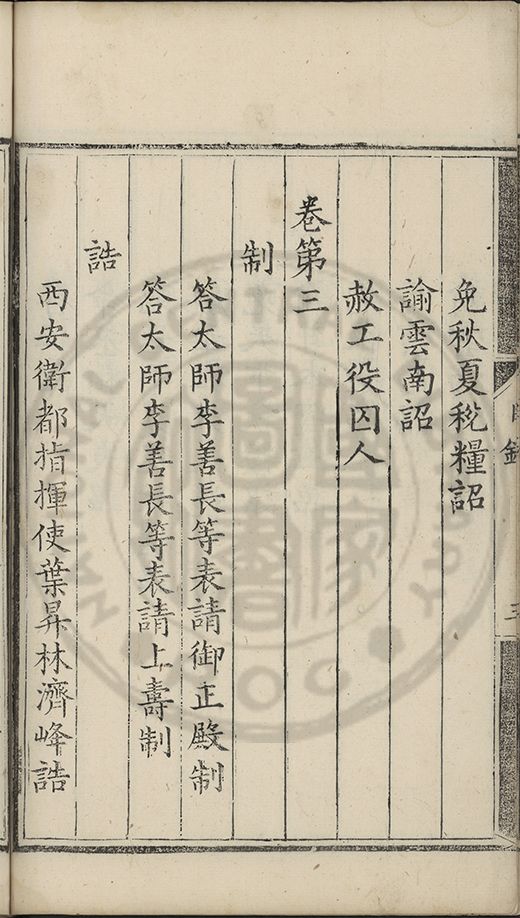 免秋夏稅糧詔
諭雲南詔
赦工役囚人
卷第三
制
答太師李善長等表請御正殿制
答太師李善長等表請上壽制
誥
西安衛都指揮使葉昇林濟峰誥